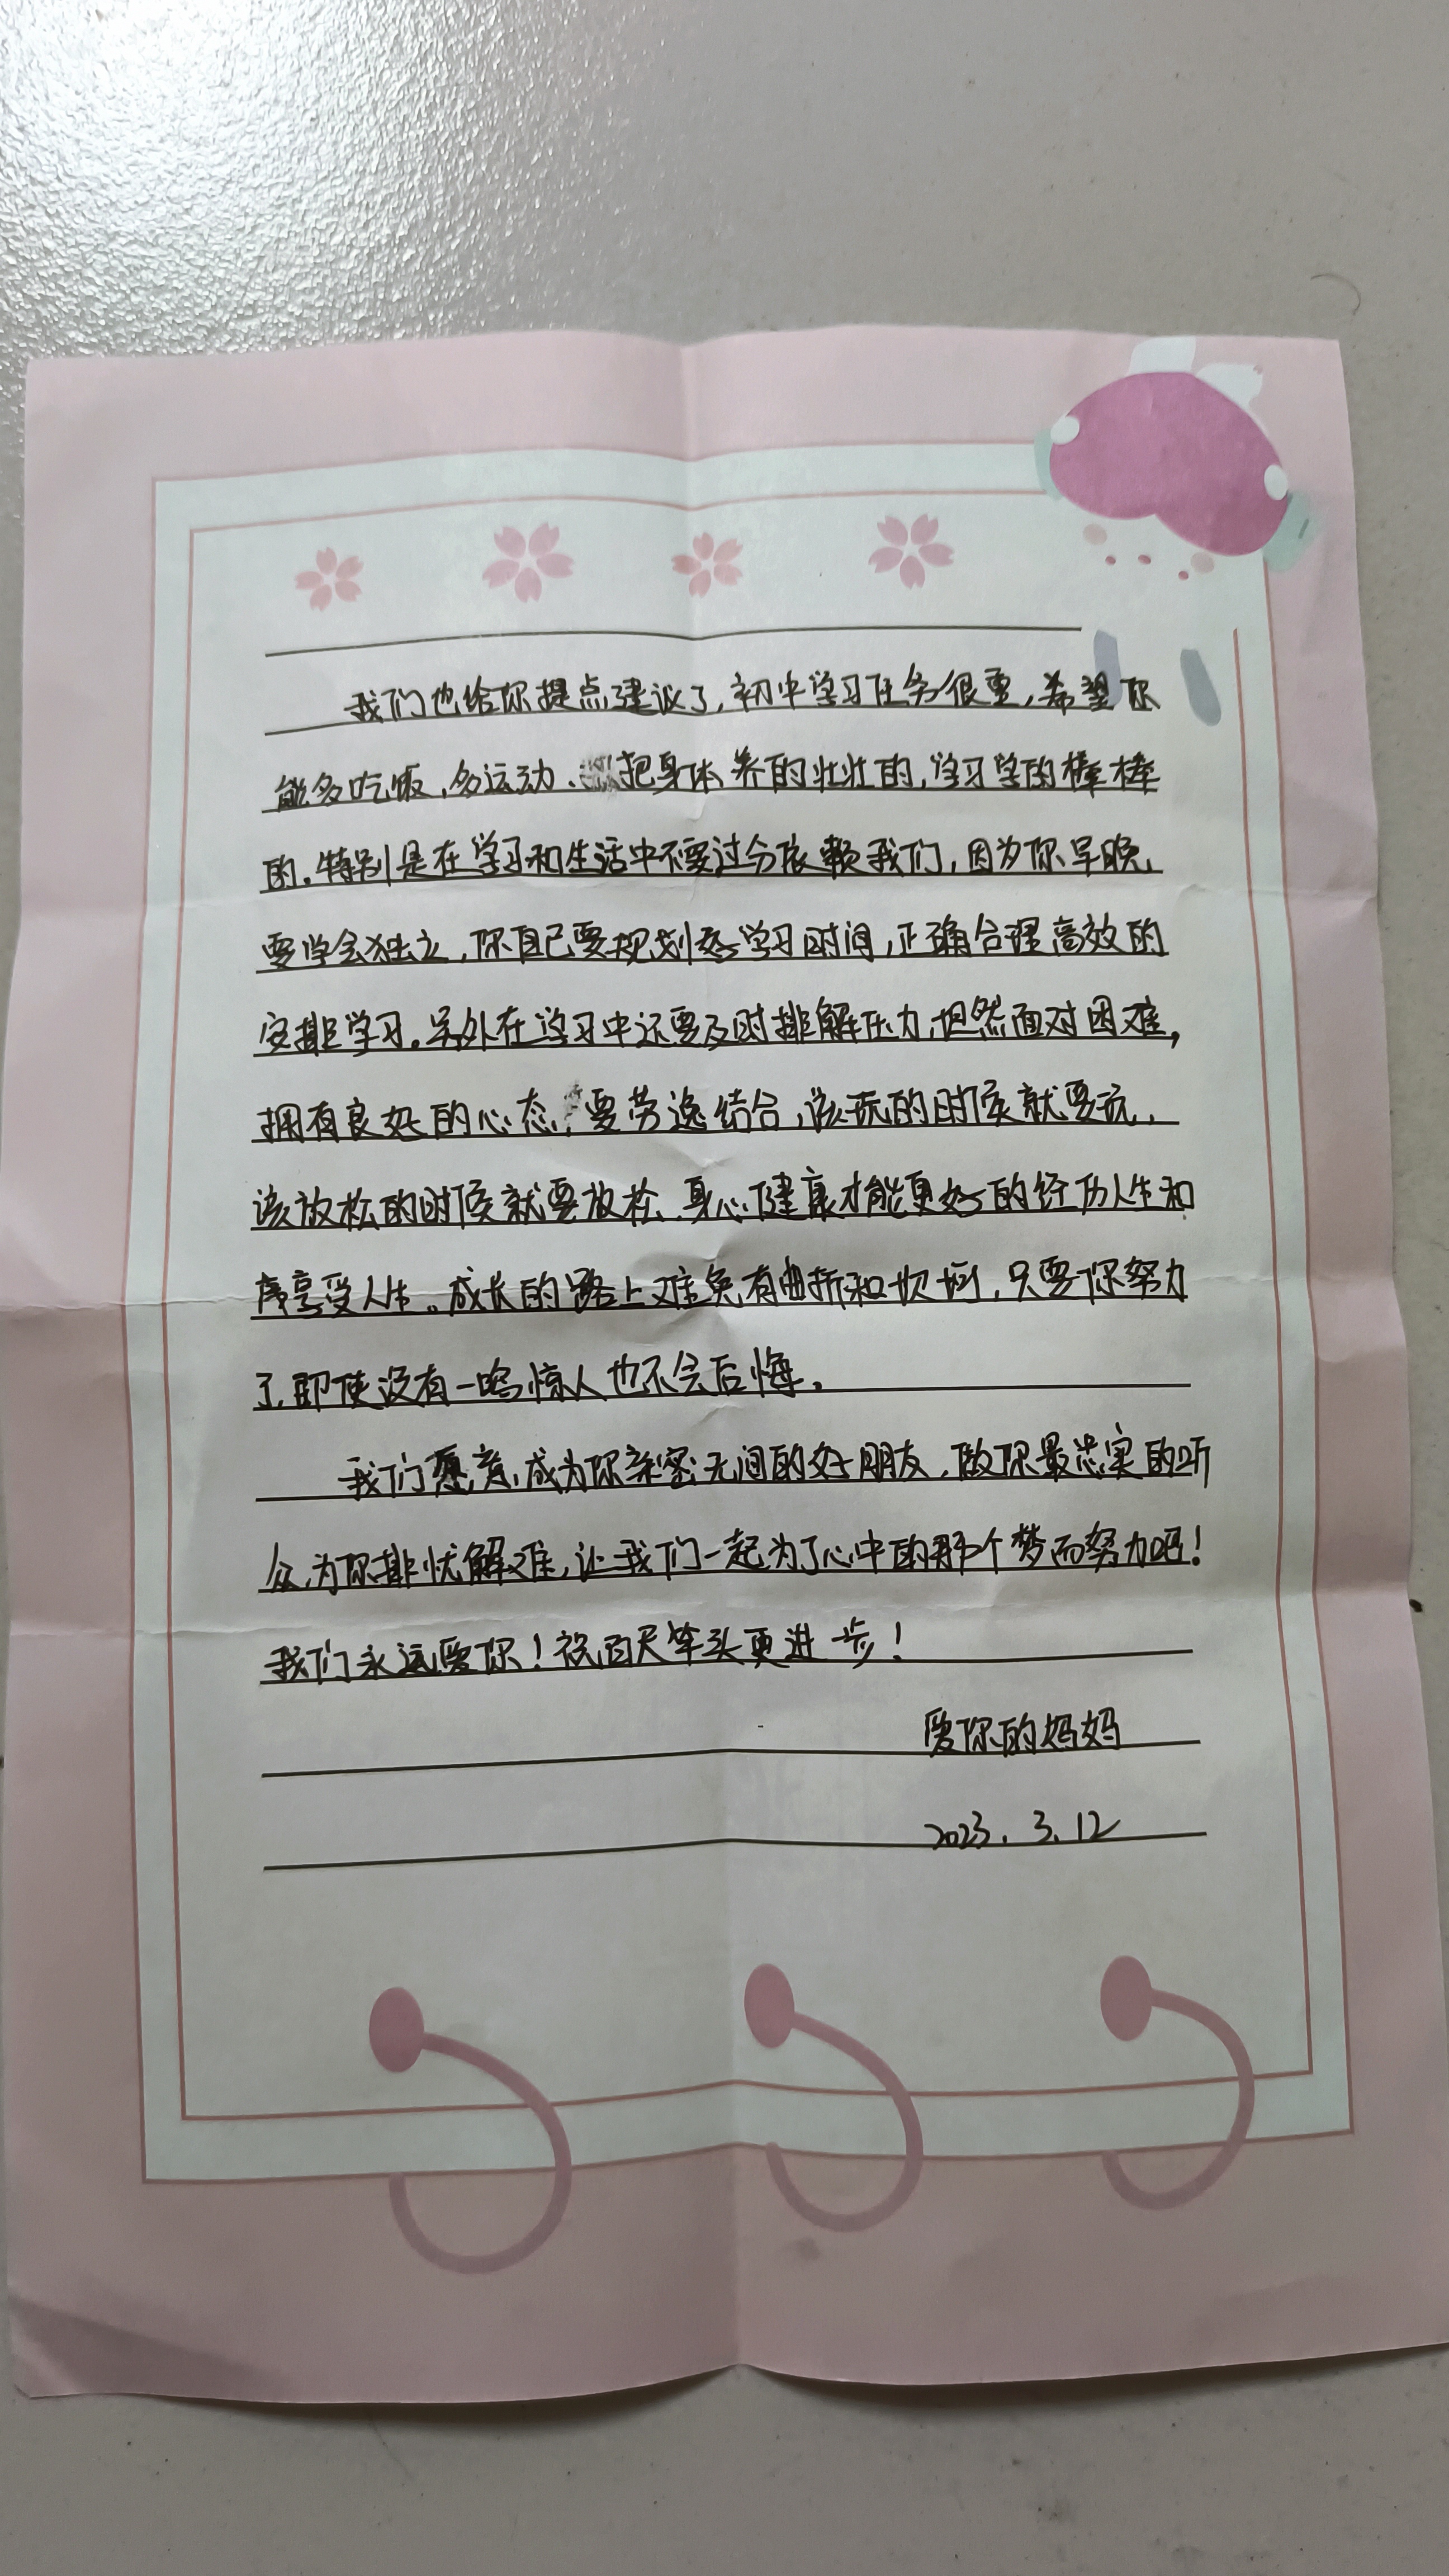 我们也给你提点建议了，初中学习任务很重，希望你
能多吃饭，多运动、把身体养的壮壮的，学习学的棒棒
的。特别是在学习和生活中不要过分依赖我们，因为你早晚
要学会独立，你自己要规划好学习时间，正确合理高效的
安排学习。另外在学习中还要及时排解压力，坦然面对困难，
拥有良好的心态，要劳逸结合，该玩的时候就要玩，
该放松的时候就要放松，身心健康才能更好的经历人生和
享受人生。成长的路上难免有曲折和坎坷，只要你努力
了，即使没有一鸣惊人也不会后悔。
我们愿意成为你亲密无间的好朋友，做你最忠实的听
众，为你排忧解难，让我们一起为了心中的那个梦而努力吧！
我们永远爱你！祝百尺竿头更进一步！
爱你的妈妈
2023.3.12